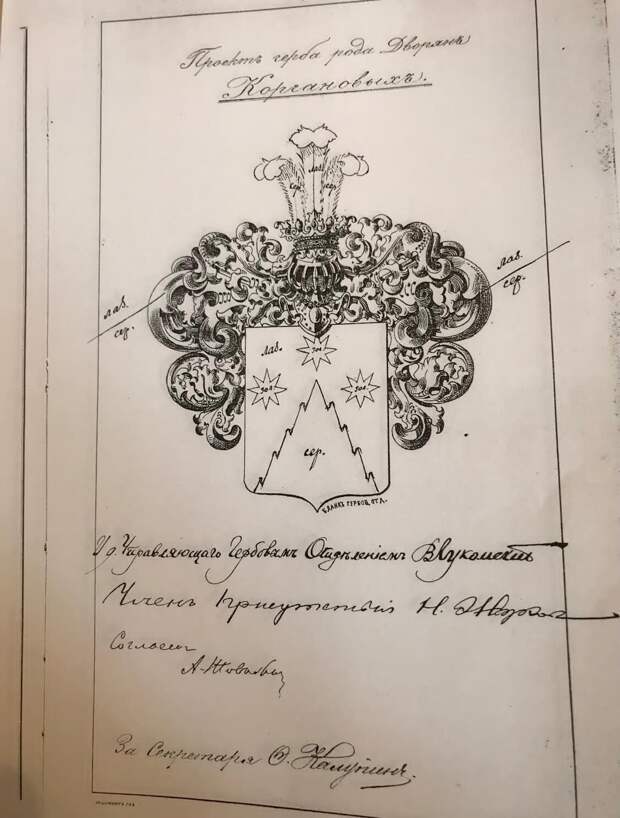 Проектъ герба рода Дворянъ
Коргановыхъ.
сер. лаз. сер.
лаз.
сер.
лаз.
сер.
лаз.
зол.
зол. зол.
сер.
БЛАНКЪ ГЕРБОВ. ОТД.
И д. Управляющаго Гербовымъ Отдѣленіемъ В Лукомскій
Членъ Присутствія Н.
Согласен
А.
За Секретаря